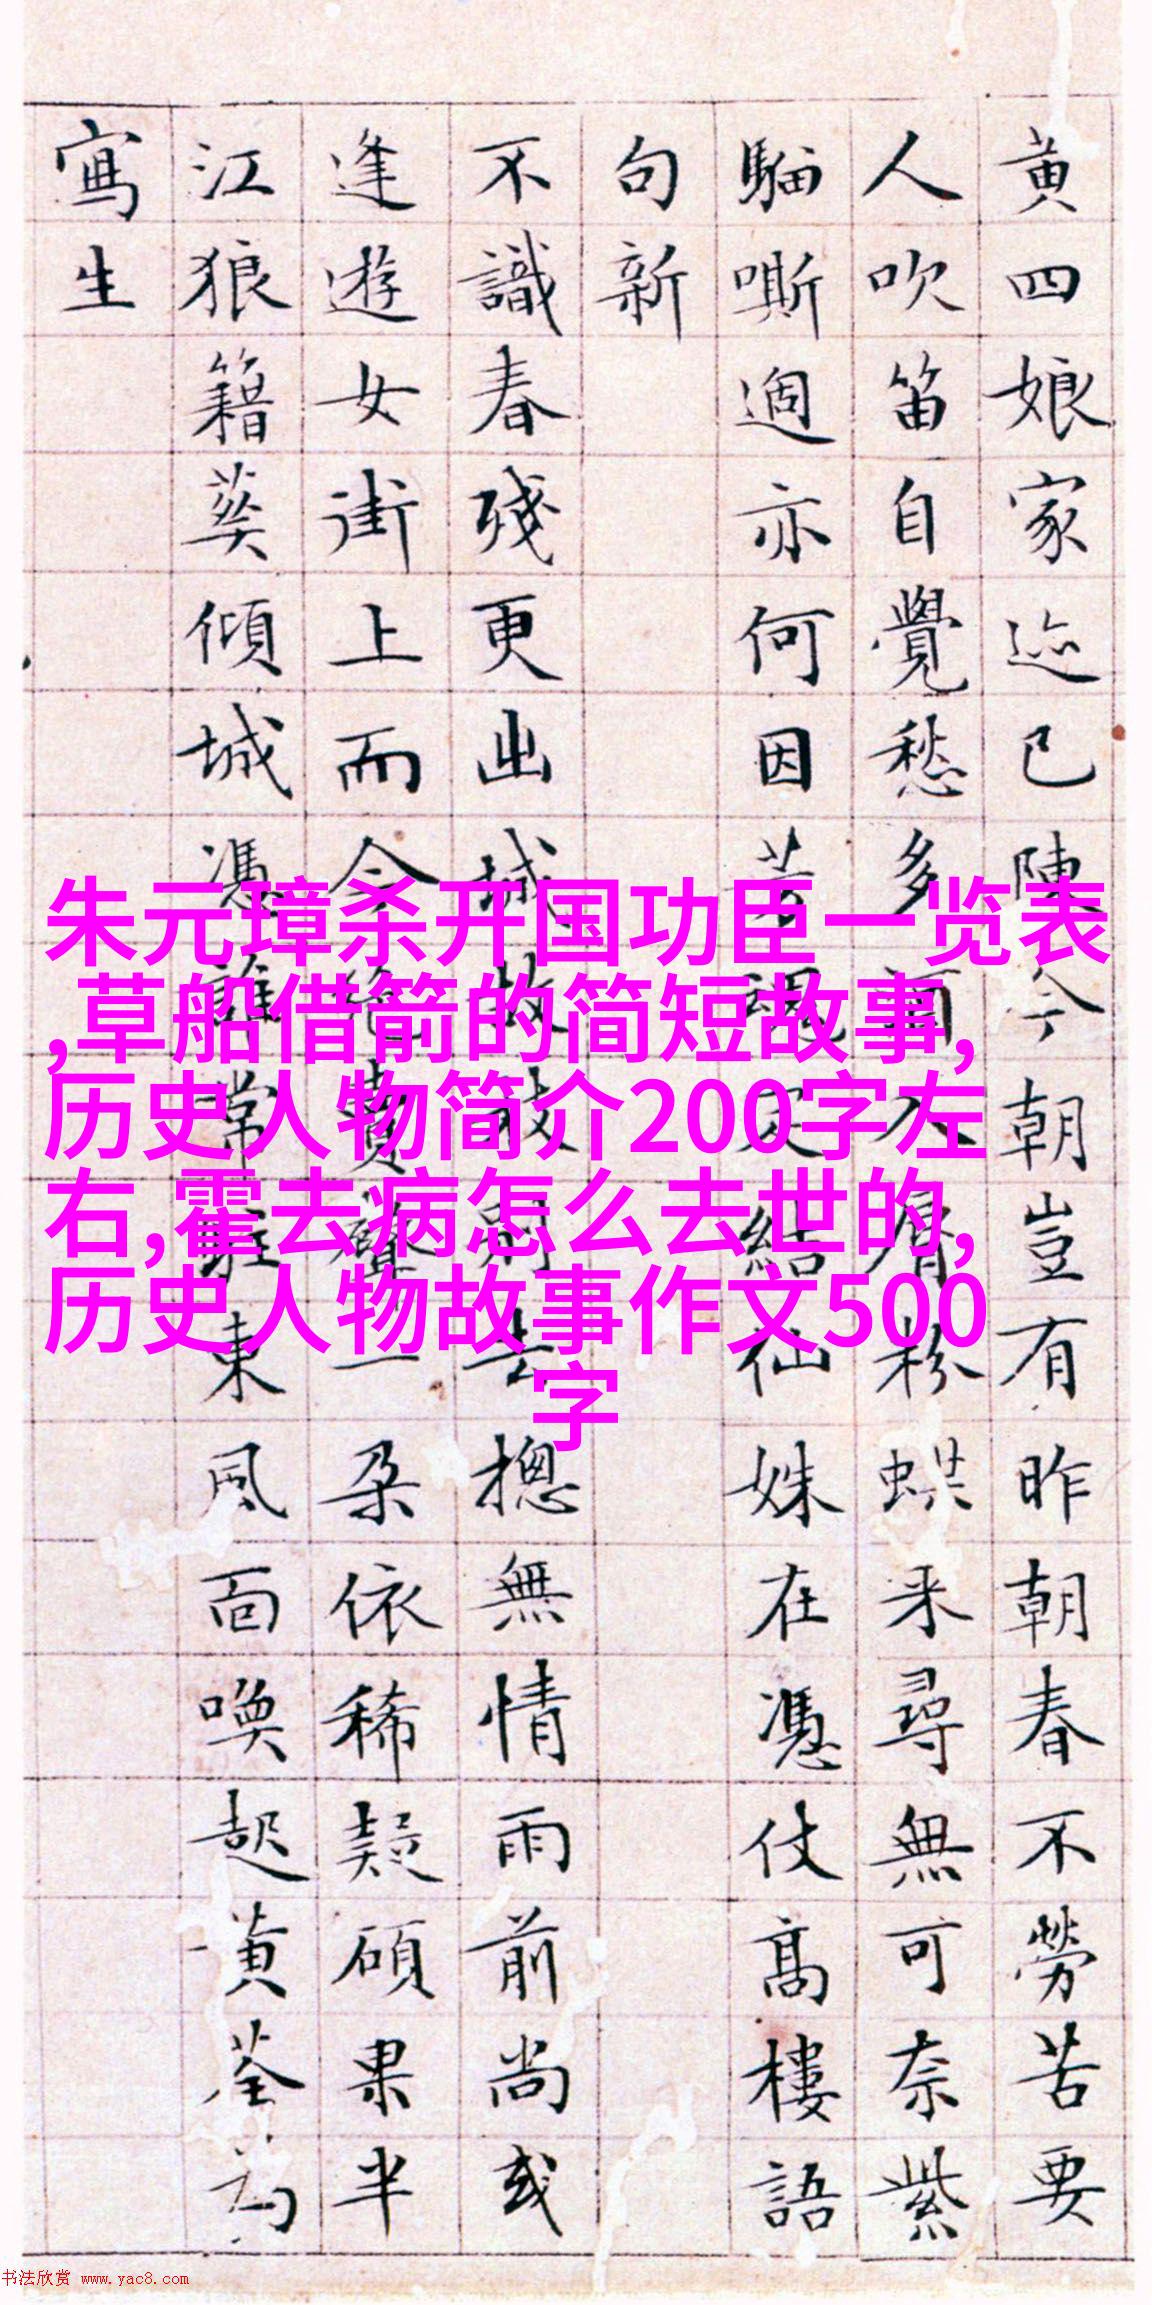 黄四娘家迹已陳今朝豈有昨朝春不勞苦要
人吹笛自覺愁多入屑粉蝶来尋無可奈紫
騮嘶過亦何因芳魂定結仙姝在憑仗高樓語
句新
不識春殘更出城故枝别去摠無情雨前尚或
逢遊女街上而今絶賣聲一朵依稀疑碩果半
江狼籍葬傾城憑誰常駐東風面喚起黄荃為
寫生
朱元璋杀开国功臣一览表
,草船借箭的简短故事,
历史人物简介200字左
右,霍去病怎么去世的,
历史人物故事作文500
字
书法欣赏 www.yac8.com